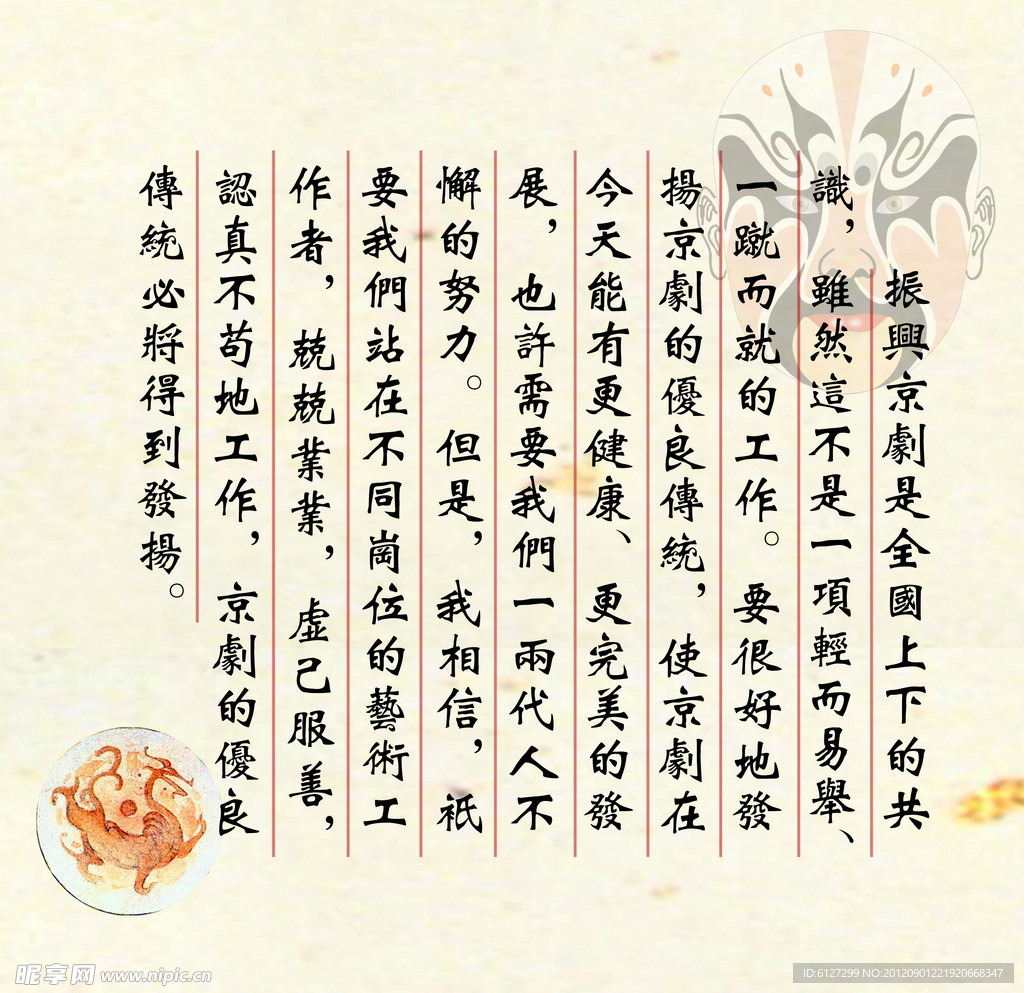 振興京劇是全國上下的共
識，雖然這不是一項輕而易舉、
一蹴而就的工作。要很好地發
揚京劇的優良傳統，使京劇在
今天能有更健康、更完美的發
展，也許需要我們一兩代人不
懈的努力。但是，我相信，衹
要我們站在不同崗位的藝術工
作者，兢兢業業，虛己服善，
認真不苟地工作，京劇的優良
傳統必將得到發揚。
昵享网 www.nipic.cn
ID:6127299 NO:20120901221920668347